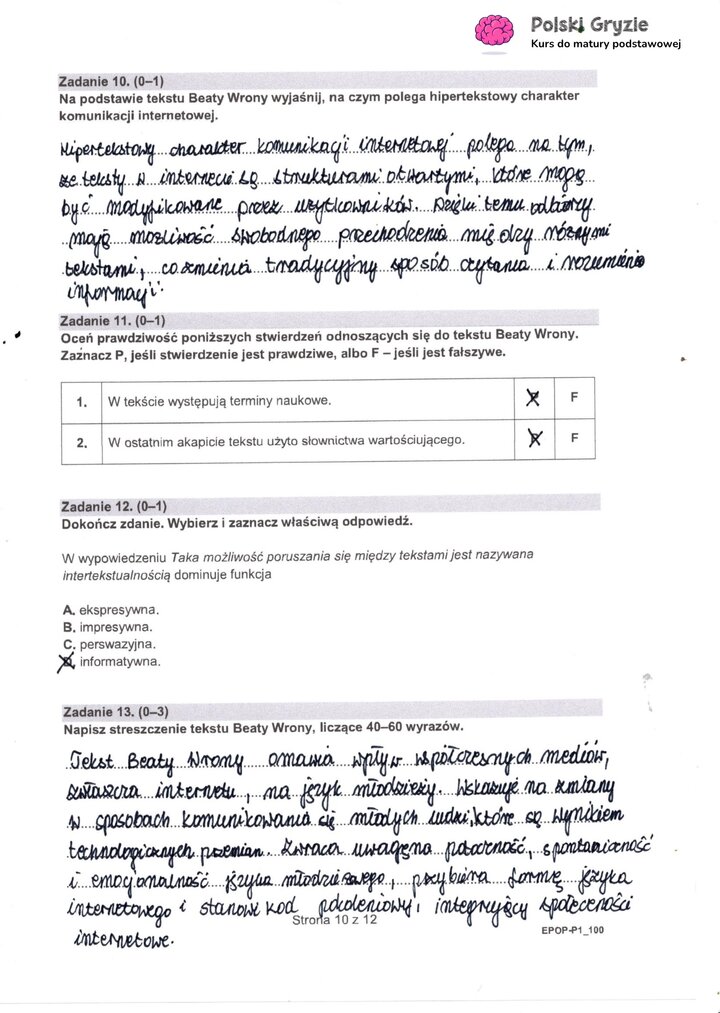 Polski Gryzie
Kurs do matury podstawowej
Zadanie 10. (0–1)
Na podstawie tekstu Beaty Wrony wyjaśnij, na czym polega hipertekstowy charakter
komunikacji internetowej.
Hipertekstowy charakter komunikacji internetowej polega na tym,
że teksty w internecie są strukturami otwartymi, które mogą
być modyfikowane przez użytkowników. Dzięki temu odbiorcy
mają możliwość swobodnego przechodzenia między różnymi
tekstami, co zmienia tradycyjny sposób czytania i rozumienia
informacji.
Zadanie 11. (0–1)
Oceń prawdziwość poniższych stwierdzeń odnoszących się do tekstu Beaty Wrony.
Zaznacz P, jeśli stwierdzenie jest prawdziwe, albo F – jeśli jest fałszywe.
1. W tekście występują terminy naukowe. P F
2. W ostatnim akapicie tekstu użyto słownictwa wartościującego. P F
Zadanie 12. (0–1)
Dokończ zdanie. Wybierz i zaznacz właściwą odpowiedź.
W wypowiedzeniu Taka możliwość poruszania się między tekstami jest nazywana
intertekstualnością dominuje funkcja
A. ekspresywna.
B. impresywna.
C. perswazyjna.
D. informatywna.
Zadanie 13. (0–3)
Napisz streszczenie tekstu Beaty Wrony, liczące 40–60 wyrazów.
Tekst Beaty Wrony omawia wpływ współczesnych mediów,
zwłaszcza internetu, na język młodzieży. Wskazuje na zmiany
w sposobach komunikowania się młodych ludzi, które są wynikiem
technologicznych przemian. Zwraca uwagę na potoczność, spontaniczność
i emocjonalność języka młodzieżowego, przybiera formę języka
internetowego i stanowi kod pokoleniowy, integrujący społeczności
internetowe.
Strona 10 z 12
EPOP-P1_100